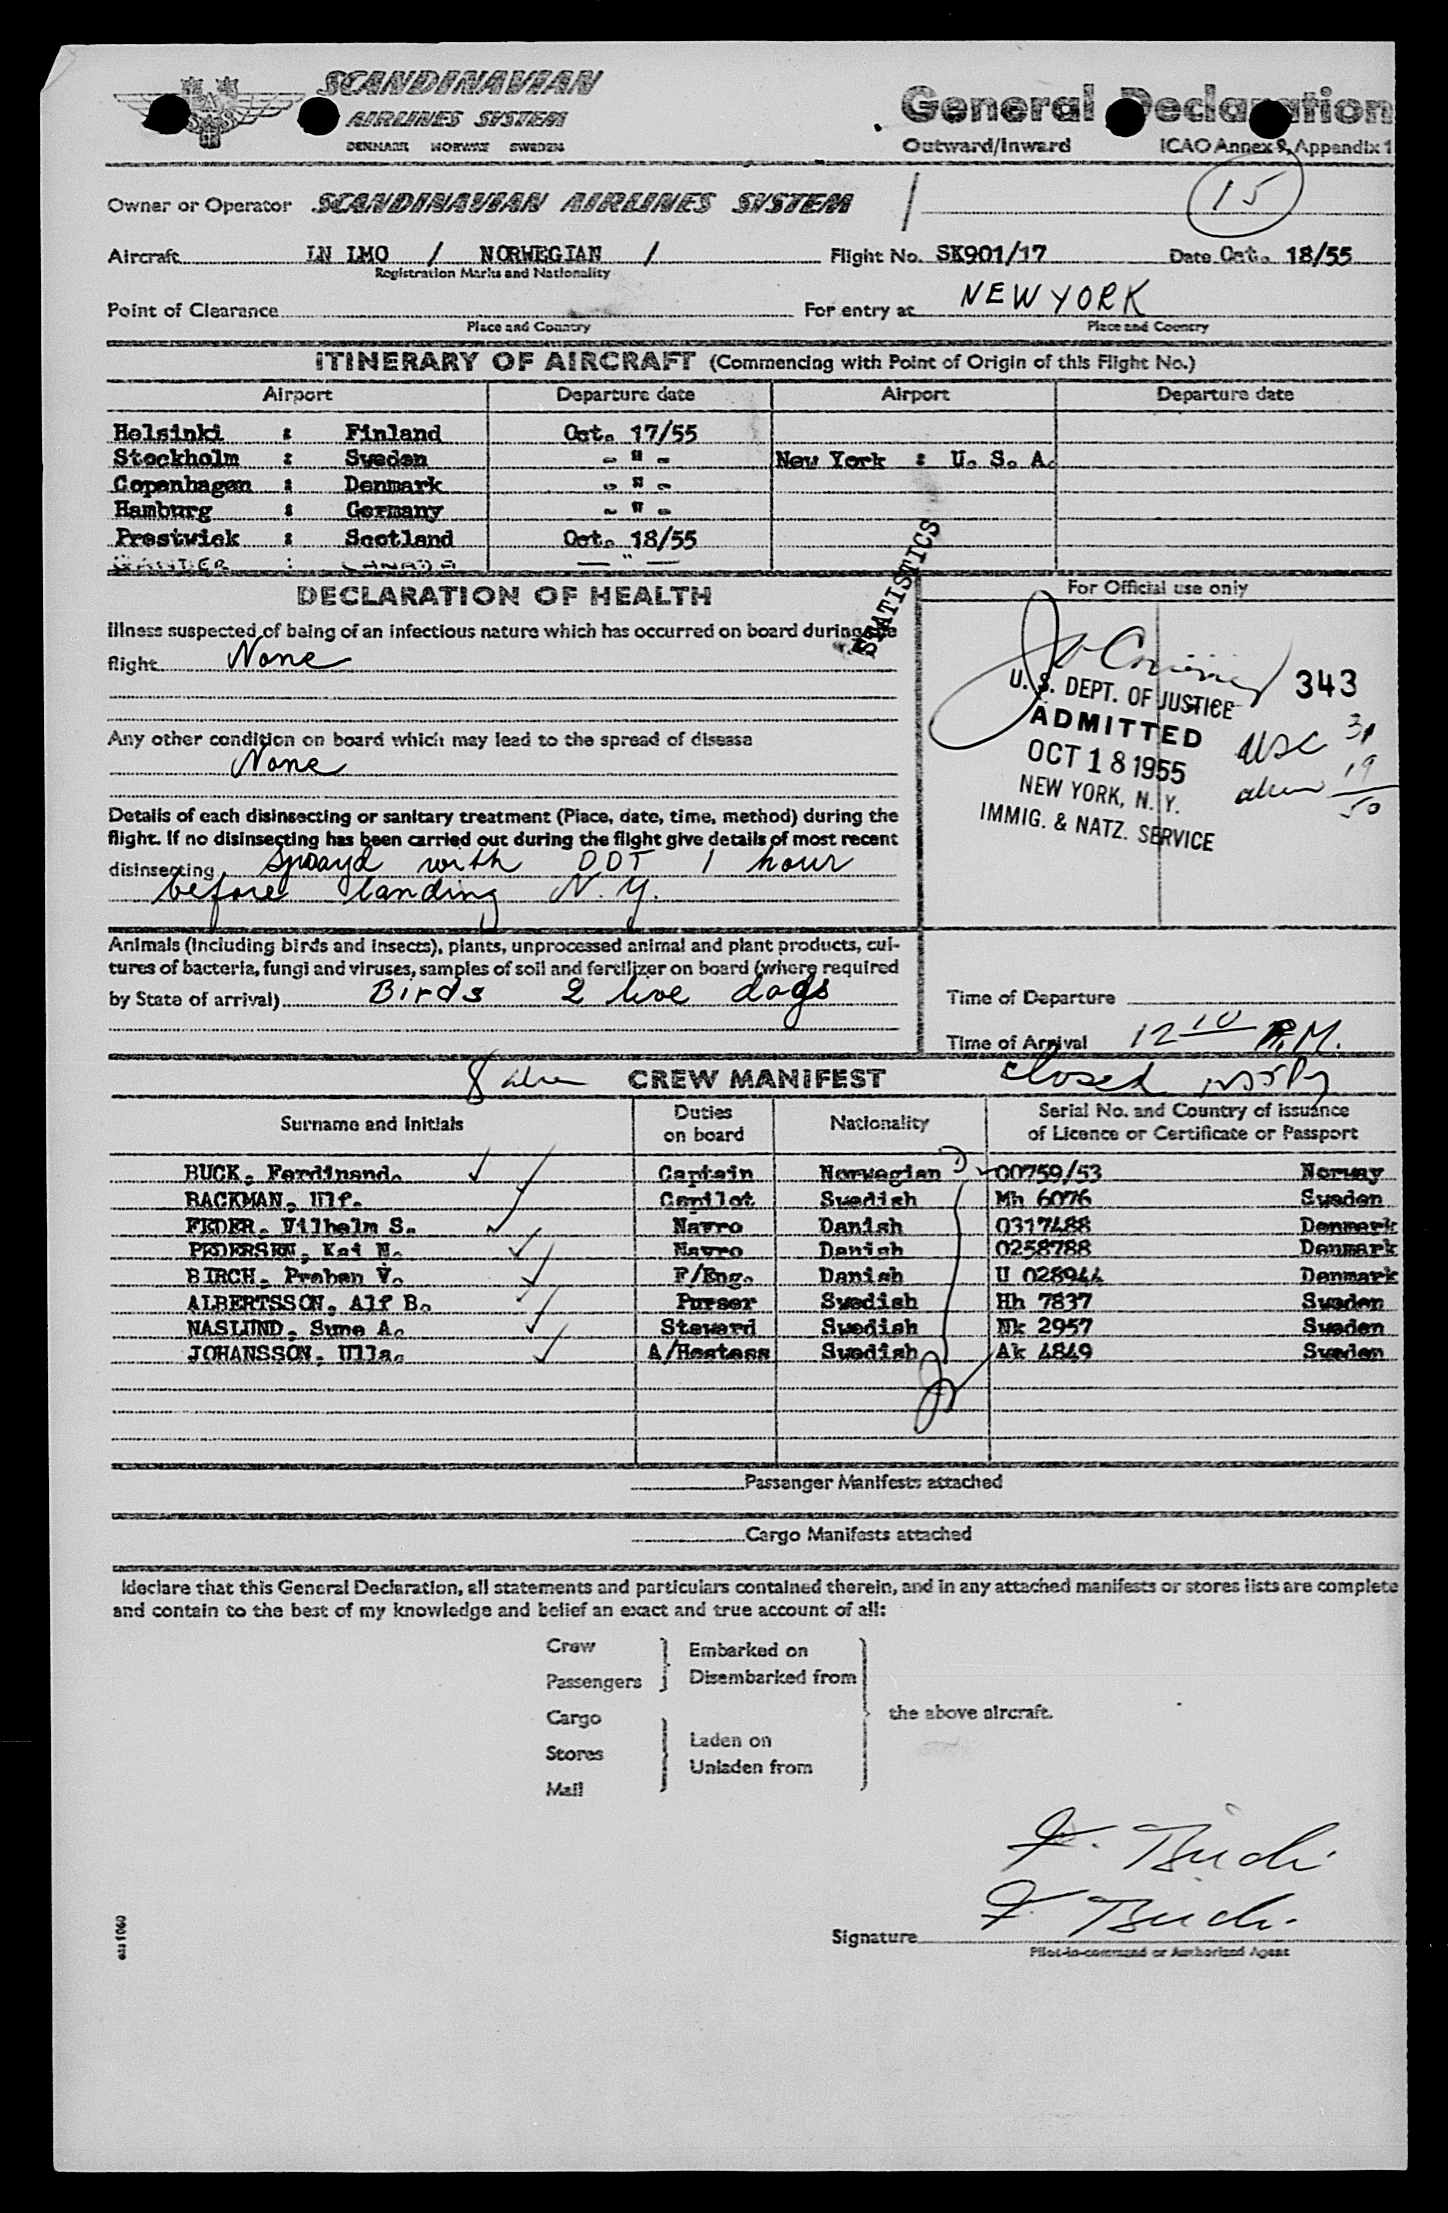 SCANDINAVIAN
AIRLINES SYSTEM
DENMARK NORWAY SWEDEN
General Declaration
Outward/Inward ICAO Annex 9, Appendix 1
15
Owner or Operator SCANDINAVIAN AIRLINES SYSTEM
Aircraft LN LMO / NORWEGIAN / Flight No. SK901/17 Date Oct. 18/55
Registration Marks and Nationality
Point of Clearance For entry at NEW YORK
Place and Country Place and Country
ITINERARY OF AIRCRAFT (Commencing with Point of Origin of this Flight No.)
Airport Departure date Airport Departure date
Helsinki : Finland Oct. 17/55
Stockholm : Sweden - " - New York : U. S. A.
Copenhagen : Denmark - " -
Hamburg : Germany - " -
Prestwick : Scotland Oct. 18/55
GANDER : CANADA - " -
STATISTICS
DECLARATION OF HEALTH
For Official use only
Illness suspected of being of an infectious nature which has occurred on board during the
flight None
Any other condition on board which may lead to the spread of disease
None
Details of each disinsecting or sanitary treatment (Place, date, time, method) during the
flight. If no disinsecting has been carried out during the flight give details of most recent
disinsecting Sprayd with DDT 1 hour
before landing N. Y.
343
U. S. DEPT. OF JUSTICE
ADMITTED
OCT 18 1955
NEW YORK, N. Y.
IMMIG. & NATZ. SERVICE
USC 31
alien 19
50
Animals (including birds and insects), plants, unprocessed animal and plant products, cul-
tures of bacteria, fungi and viruses, samples of soil and fertilizer on board (where required
by State of arrival) Birds 2 live dogs
Time of Departure
Time of Arrival 12 10 P.M.
8 alien CREW MANIFEST closed
Surname and Initials Duties on board Nationality Serial No. and Country of issuance of Licence or Certificate or Passport
BUCK, Ferdinand. Captain Norwegian 00759/53 Norway
BACKMAN, Ulf. Copilot Swedish Mh 6076 Sweden
FEDER, Vilhelm S. Navro Danish 0317488 Denmark
PEDERSEN, Kai N. Navro Danish 0258788 Denmark
BIRCH, Preben V. F/Eng. Danish U 028944 Denmark
ALBERTSSON, Alf B. Purser Swedish Hh 7837 Sweden
NASLUND, Sune A. Steward Swedish Nk 2957 Sweden
JOHANSSON, Ulla. A/Hostess Swedish Ak 4849 Sweden
Passenger Manifests attached
Cargo Manifests attached
I declare that this General Declaration, all statements and particulars contained therein, and in any attached manifests or stores lists are complete
and contain to the best of my knowledge and belief an exact and true account of all:
Crew
Passengers
Embarked on
Disembarked from
Cargo
Stores
Mail
Laden on
Unladen from
the above aircraft.
F. Buck.
F. Buck.
Signature
Pilot-in-command or Authorized Agent